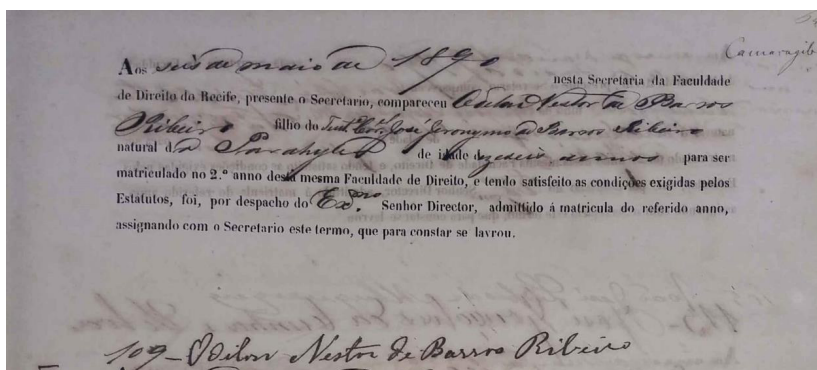 Camaragib
Aos seis de maio de 1890 nesta Secretaria da Faculdade
de Direito do Recife, presente o Secretario, compareceu Odilon Nestor de Barros
Ribeiro filho do Tente Cor.el José Jeronymo de Barros Ribeiro
natural da Parahyba de idade dezeseis annos para ser
matriculado no 2.º anno desta mesma Faculdade de Direito, e tendo satisfeito as condições exigidas pelos
Estatutos, foi, por despacho do Ex.mo Senhor Director, admittido á matricula do referido anno,
assignando com o Secretario este termo, que para constar se lavrou.
109 - Odilon Nestor de Barros Ribeiro